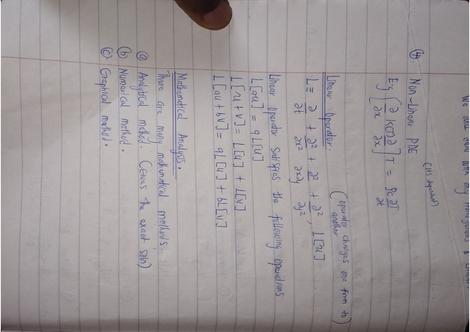 We will care with only homogenous & linear.
(It's dependent)
④ Non-Linear PDE
Eg [∂/∂x K(T)∂/∂x]T = ρc ∂T/∂t
Linear Operator. (operator changes one form to another)
L ≡ ∂/∂t + ∂²/∂x² + ∂²/∂x∂y + ∂²/∂y², L[u]
Linear operator satisfies the following operations
L[au] = aL[u]
L[u+v] = L[u] + L[v]
L[au+bv] = aL[u] + bL[v]
Mathematical Analysis.
There are many mathematical methods.
ⓐ Analytical method. (Gives the exact soln)
ⓑ Numerical method.
ⓒ Graphical method.